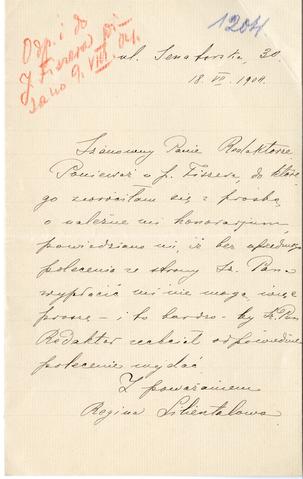 1204
Odp. i do
J. Fiszera pi
sano 9. VIII 04.
ul. Senatorska, 30.
18. VII. 1904.
Szanowny Panie Redaktorze
Ponieważ u J. Fiszera, do które
go zwróciłam się z prośbą
o należne mi honoraryum,
powiedziano mi, iż bez uprzedniego
polecenia ze strony Sz. Pana
wypłacić mi nie mogą, więc
proszę – i to bardzo – by Sz. Pan
Redaktor zechciał odpowiednie
polecenie wydać.
Z poważaniem
Regina Lilientalowa